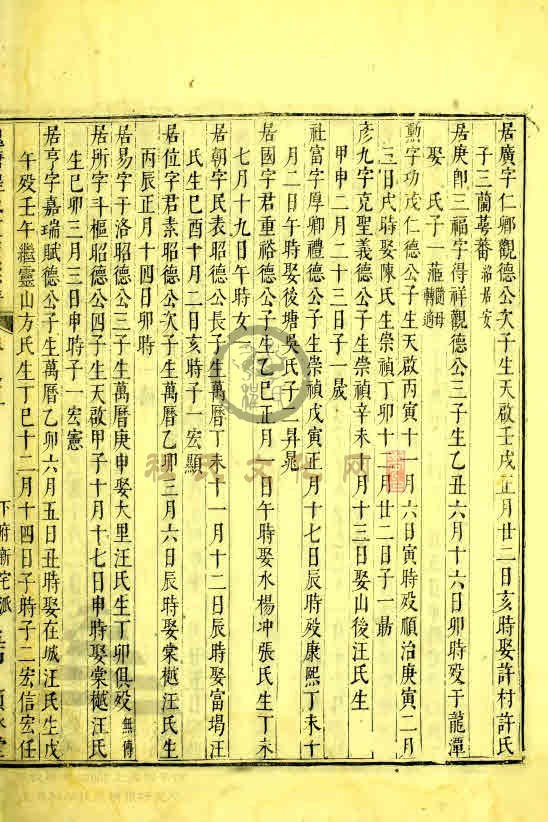 居廣字仁卿觀德公次子生天啟壬戌正月廿二日亥時娶許村許氏
子三蘭蕚蕃
居庚郎三福字得祥觀德公三子生乙丑六月十六日卯時殁于龍潭
娶　氏子一蒞隨母轉適
勲字功茂仁德公子生天啟丙寅十一月六日寅時殁順治庚寅二月
三日戌時娶陳氏生崇禎丁卯十月廿二日子一勗
彥九字克聖義德公子生崇禎辛未八月十三日娶山後汪氏生
甲申二月二十三日子一晟
社富字厚卿禮德公子生崇禎戊寅正月十七日辰時殁康熙丁未十
月二日午時娶後塘吳氏子二昇晁
居國字君重裕德公子生乙巳正月一日午時娶水楊冲張氏生丁未
七月十九日午時女一
居朝字民表昭德公長子生萬曆丁未十一月十二日辰時娶富堨汪
氏生己酉十月二日亥時子一宏顯
居位字君素昭德公次子生萬曆乙卯三月六日辰時娶棠樾汪氏生
丙辰正月十四日卯時
居易字于洛昭德公三子生萬曆庚申娶大里汪氏生丁卯俱殁無傳
居所字斗樞昭德公四子生天啟甲子十月十七日申時娶棠樾汪氏
生己卯三月三日申時子一宏憲
居亨字嘉瑞賦德公子生萬曆乙卯六月五日丑時娶在城汪氏生戊
午殁壬午繼靈山方氏生丁巳十二月十四日子時子二宏信宏任
下府新宅派
程氏文化网